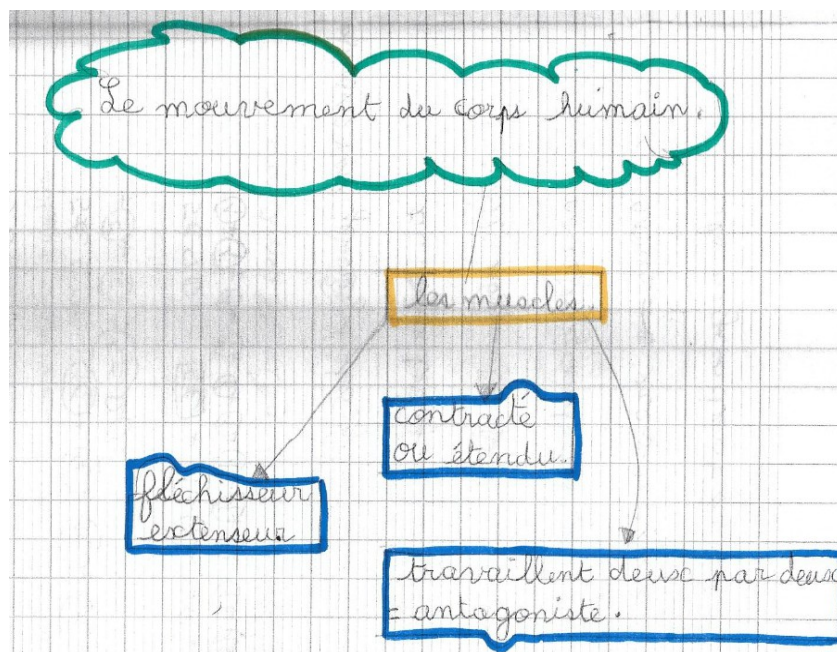 Le mouvement du corps humain.
les muscles.
contracté
ou étendu.
fléchisseur
extenseur.
travaillent deux par deux
= antagoniste.